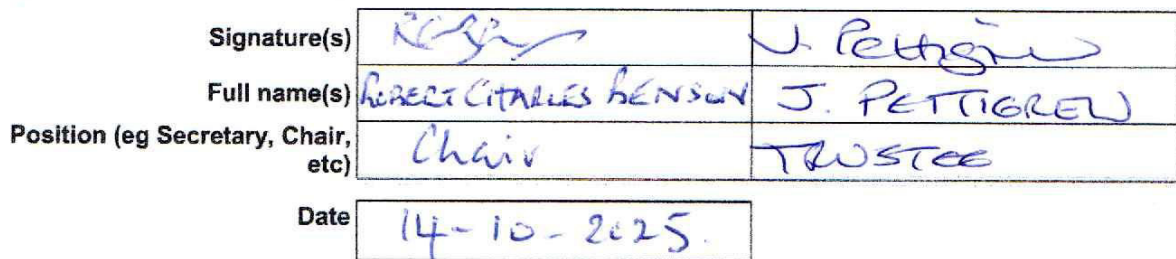 Signature(s) J. Pettigrew
Full name(s) ROBERT CHARLES BENSON J. PETTIGREW
Position (eg Secretary, Chair, etc) Chair TRUSTEE
Date 14-10-2025.